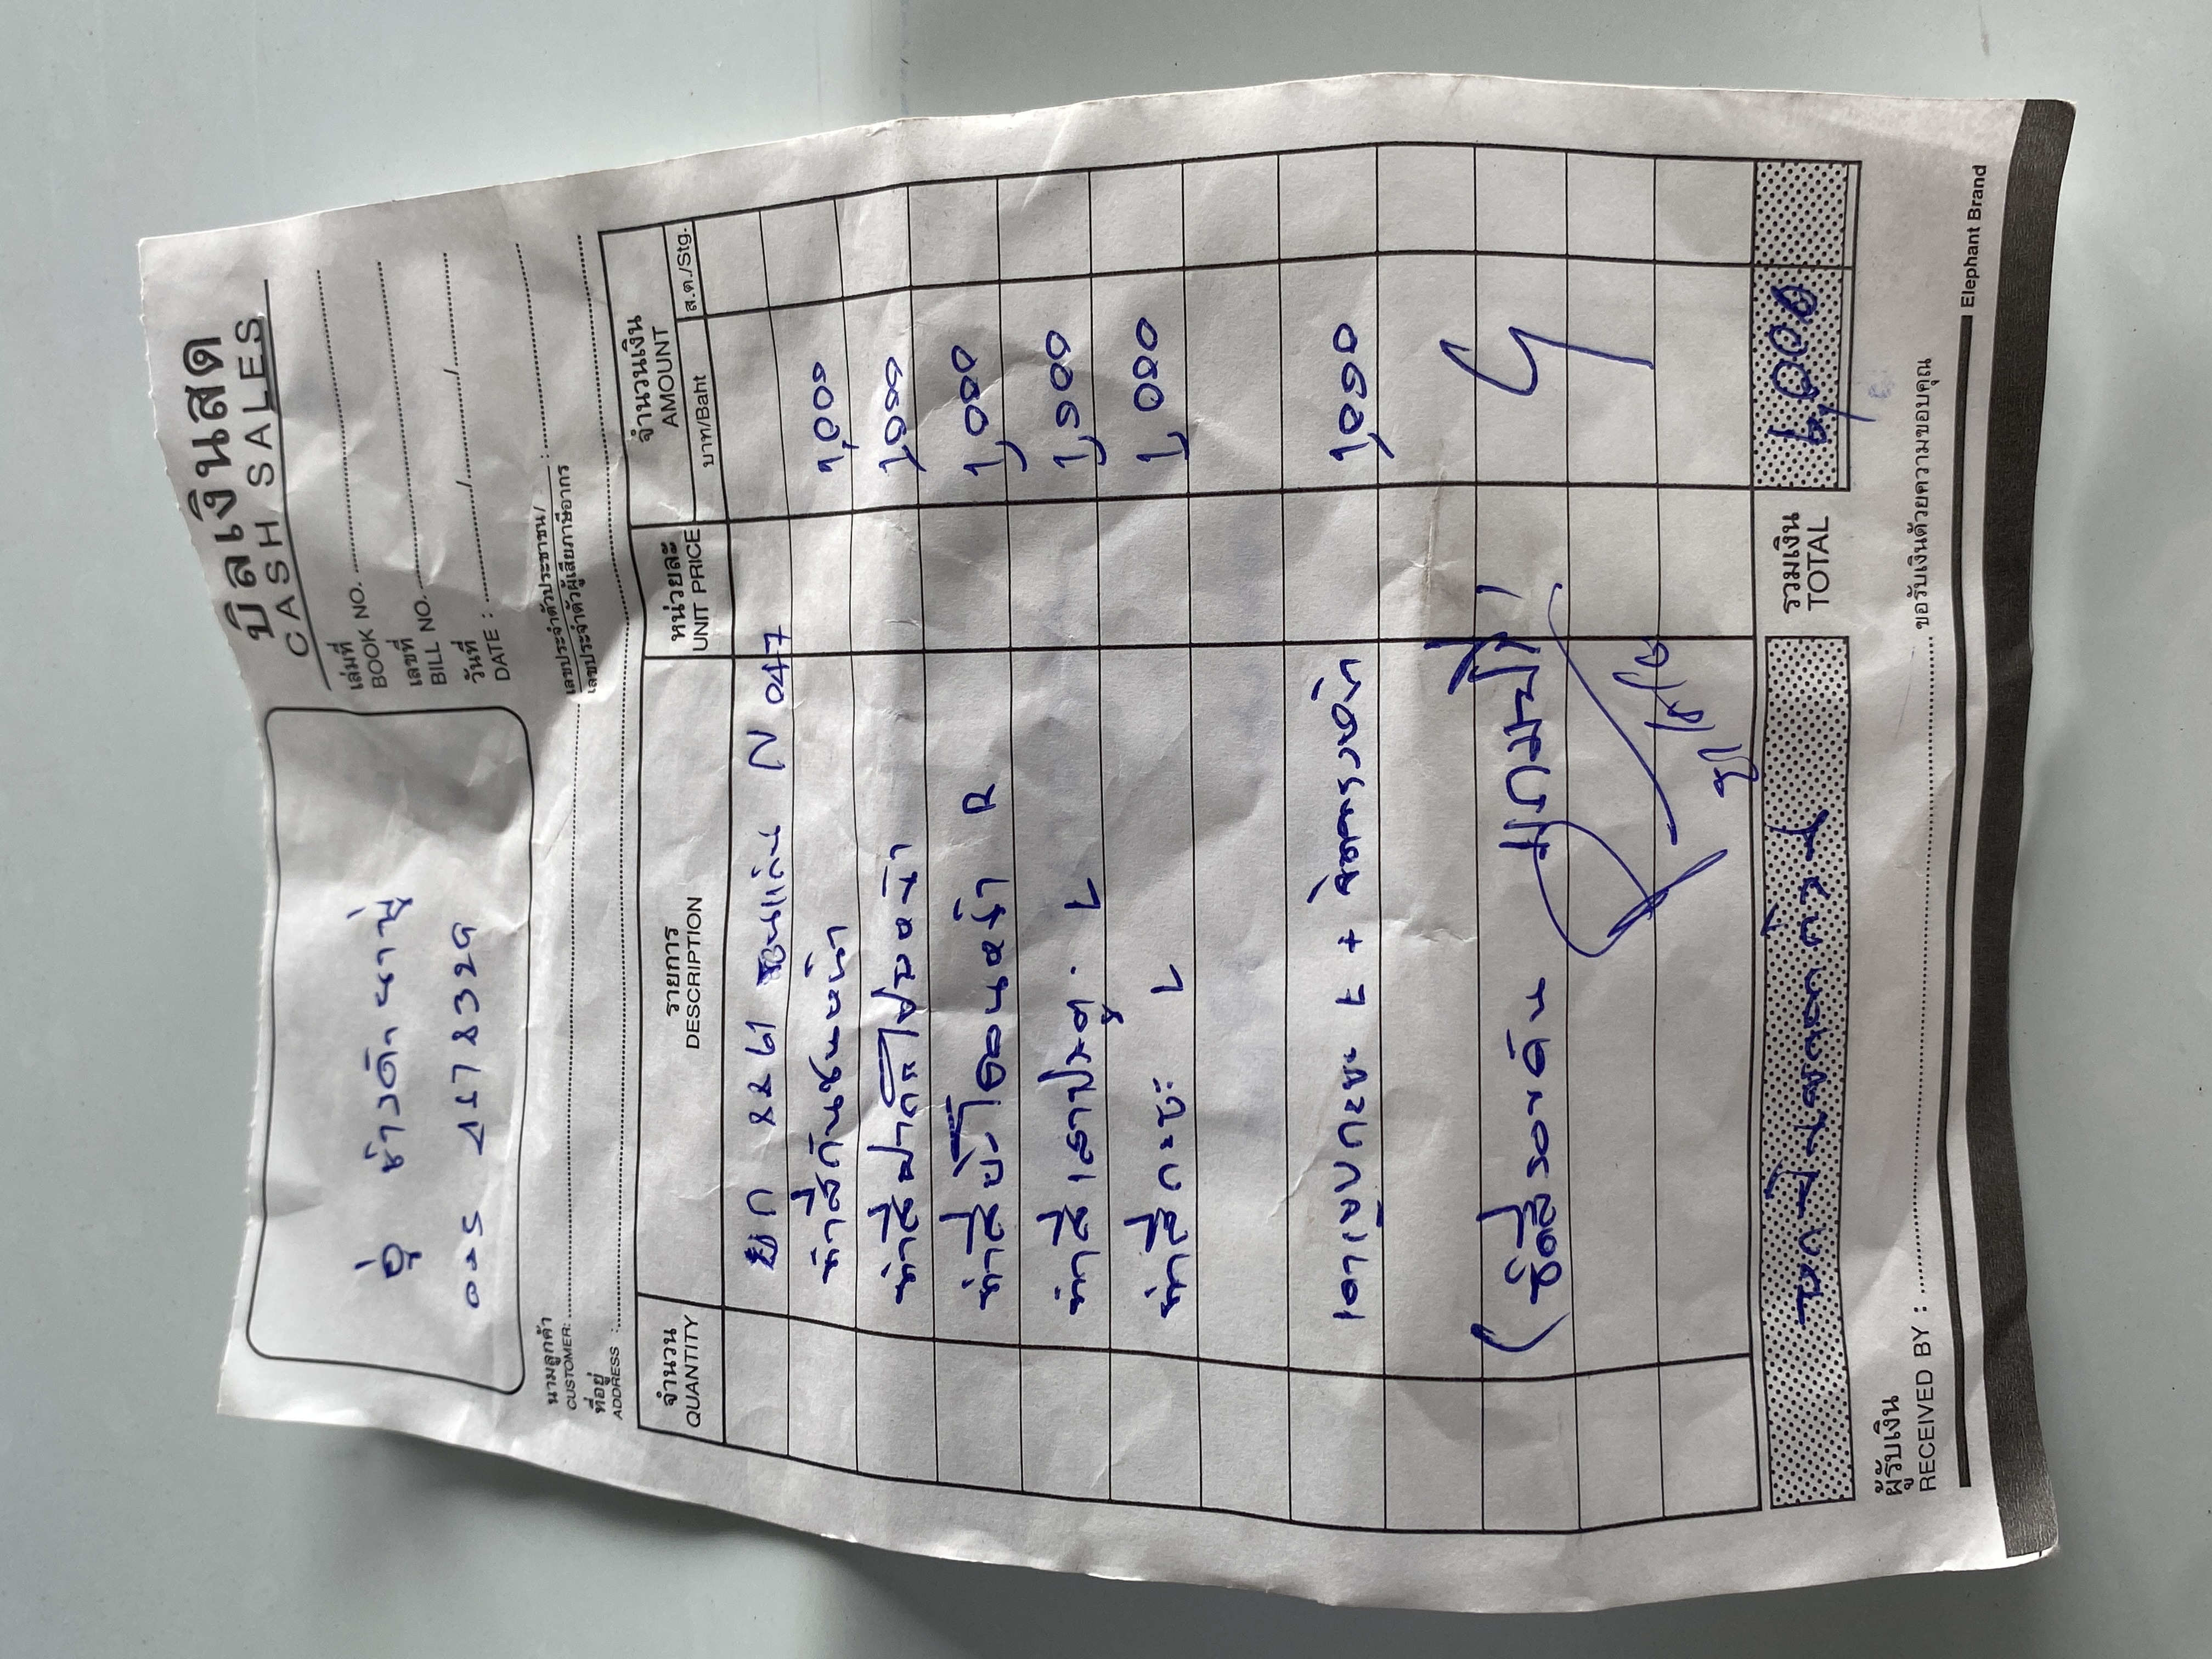 บิลเงินสด
CASH SALES
อู่ ช่างดำ นาปู่
เล่มที่
BOOK NO.
เลขที่
BILL NO.
วันที่
DATE : / /
นามลูกค้า
CUSTOMER:
เลขประจำตัวประชาชน /
เลขประจำตัวผู้เสียภาษีอากร :
ที่อยู่
ADDRESS :
จำนวน
QUANTITY
รายการ
DESCRIPTION
หน่วยละ
UNIT PRICE
จำนวนเงิน
AMOUNT
บาท/Baht ส.ต./Stg.
ขอนแก่น N 047
ทำสีกันชนหน้า 1,000
ทำสีฝากระโปรงหน้า 1,000
ทำสีบังโคลนหน้า R 1,000
ทำสีเสาประตู L 1,000
ทำสีกะบะ L 1,000
เคาะเก็บกะบะ + จุดกระจังหน้า 1,000
(ชุดสีรอบคัน
รวมเงิน
TOTAL 6,000
ผู้รับเงิน
RECEIVED BY : ขอรับเงินด้วยความขอบคุณ
Elephant Brand